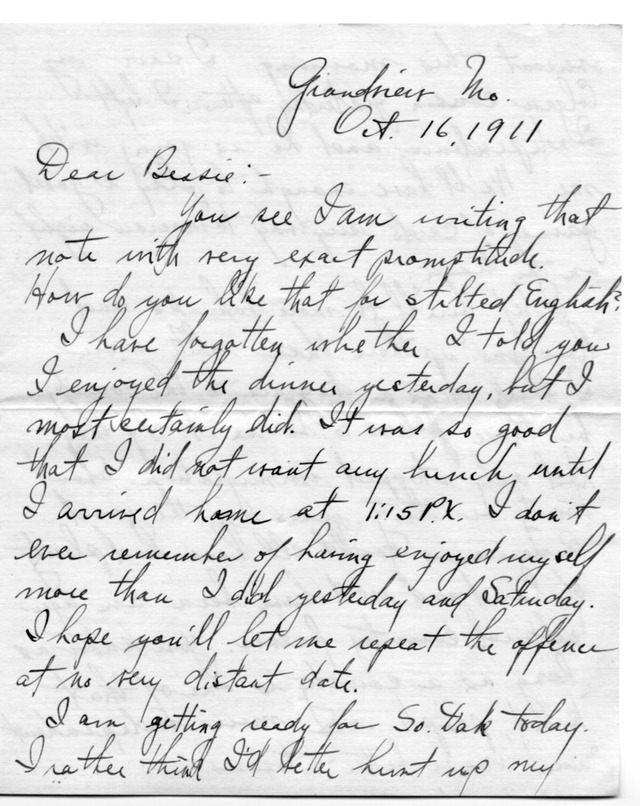 Grandview Mo.
Oct. 16, 1911
Dear Bessie:-
You see I am writing that
note with very exact promptitude.
How do you like that for stilted English?
I have forgotten whether I told you
I enjoyed the dinner yesterday, but I
most certainly did. It was so good
that I did not want any lunch until
I arrived home at 1:15 P.X. I don't
ever remember of having enjoyed myself
more than I did yesterday and Saturday.
I hope you'll let me repeat the offence
at no very distant date.
I am getting ready for So. Dak today.
I rather think I'd better hunt up my